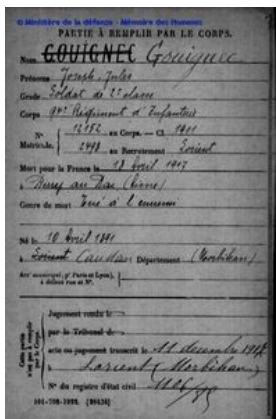 © Ministère de la défense - Mémoire des Hommes
PARTIE À REMPLIR PAR LE CORPS.
Nom GOUIGNEC Gouignec
Prénoms Joseph Jules
Grade Soldat de 2e classe
Corps 94e Régiment d'Infanterie
N° 12152 au Corps. — Cl. 1911
Matricule. 2498 au Recrutement Lorient
Mort pour la France le 18 Avril 1917
à Berry au Bac (Aisne)
Genre de mort Tué à l'ennemi
Né le 10 Avril 1891
à Lorient Caudan Département (Morbihan)
Arr municipal (pr Paris et Lyon),
à défaut rue et N°.
Cette partie n'est pas à remplir par le Corps.
Jugement rendu le
par le Tribunal de
acte ou jugement transcrit le 11 decembre 1917
à Lorient (Morbihan)
N° du registre d'état civil 1106/